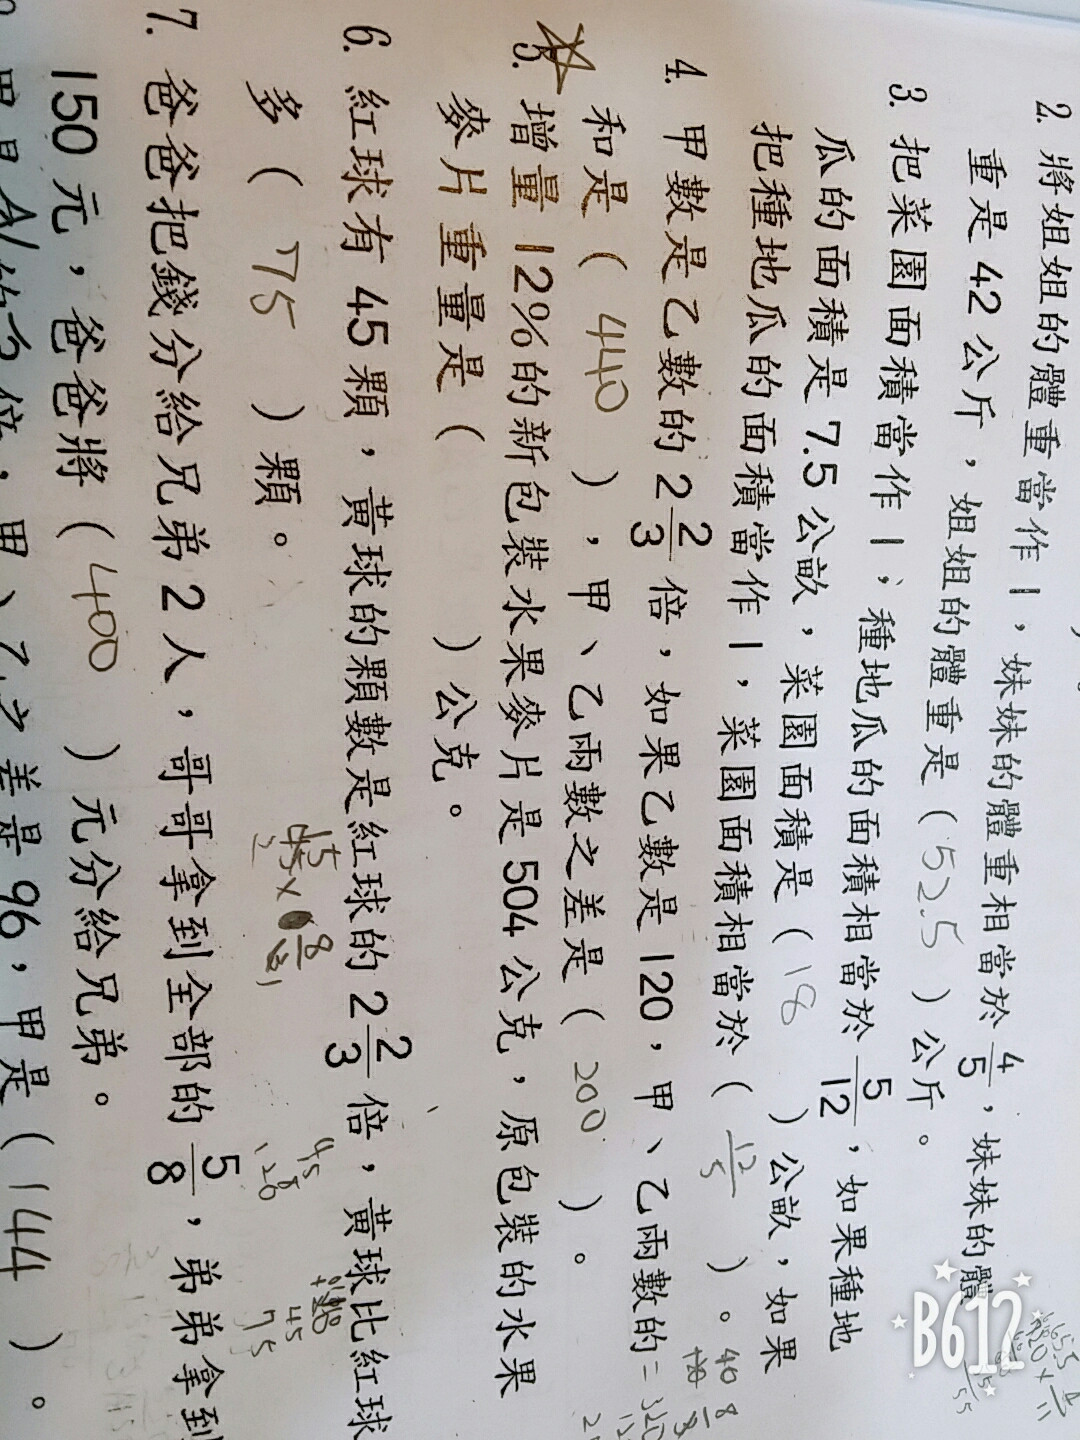 2. 將姐姐的體重當作1，妹妹的體重相當於4/5，妹妹的體
重是42公斤，姐姐的體重是（52.5）公斤。
3. 把菜園面積當作1，種地瓜的面積相當於5/12，如果種地
瓜的面積是7.5公畝，菜園面積是（18）公畝，如果
把種地瓜的面積當作1，菜園面積相當於（12/5）。
4. 甲數是乙數的2 2/3倍，如果乙數是120，甲、乙兩數的
和是（440），甲、乙兩數之差是（200）。
5. 增量12%的新包裝水果麥片是504公克，原包裝的水果
麥片重量是（ ）公克。
6. 紅球有45顆，黃球的顆數是紅球的2 2/3倍，黃球比紅球
多（75）顆。
45×8/3
45
120
120
45
75
7. 爸爸把錢分給兄弟2人，哥哥拿到全部的5/8，弟弟拿到
150元，爸爸將（400）元分給兄弟。
甲是A的3倍，甲、乙之差是96，甲是（144）。
B612